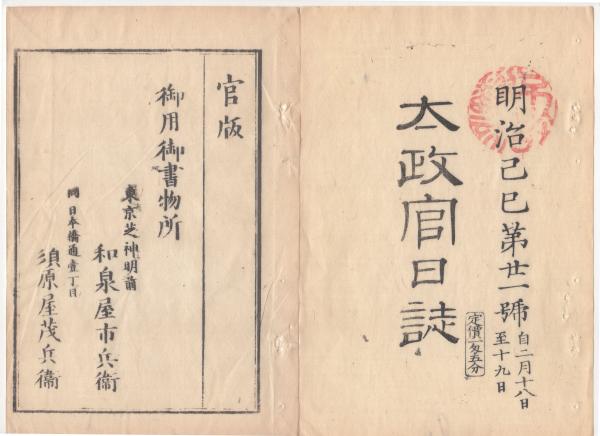 明治己巳第廿一號
自二月十八日
至十九日
太政官日誌
定價一匁五分
官版
御用御書物所
東京芝神明前
和泉屋市兵衞
同日本橋通壹丁目
須原屋茂兵衞